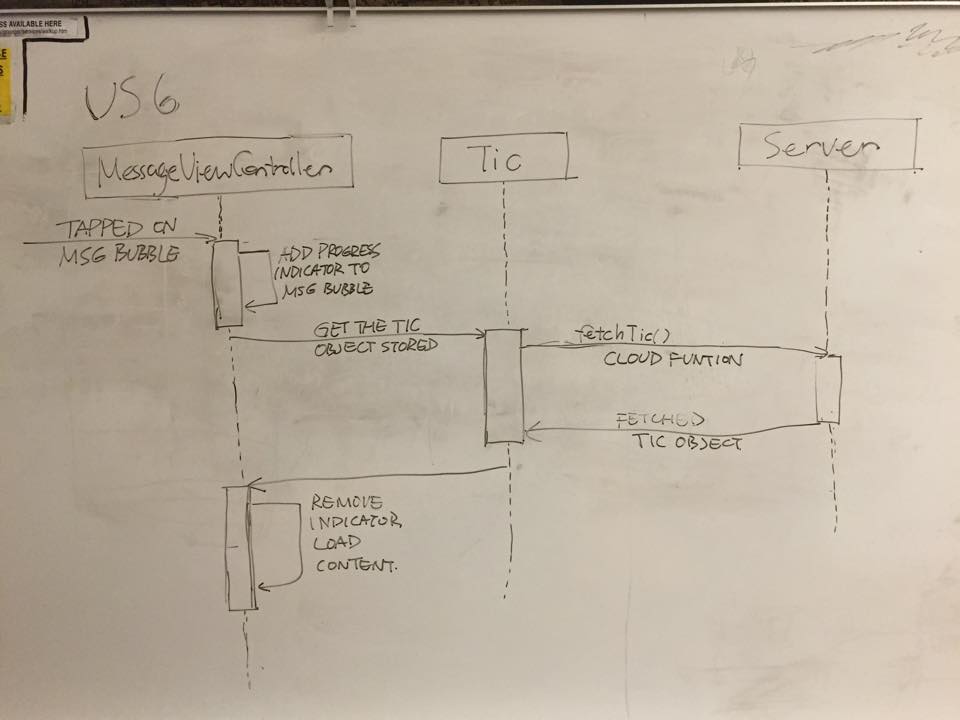 SS AVAILABLE HERE
US6
MessageViewController
Tic
Server
TAPPED ON
MSG BUBBLE
ADD PROGRESS
INDICATOR TO
MSG BUBBLE
GET THE TIC
OBJECT STORED
fetchTic()
CLOUD FUNTION
FETCHED
TIC OBJECT
REMOVE
INDICATOR,
LOAD
CONTENT.